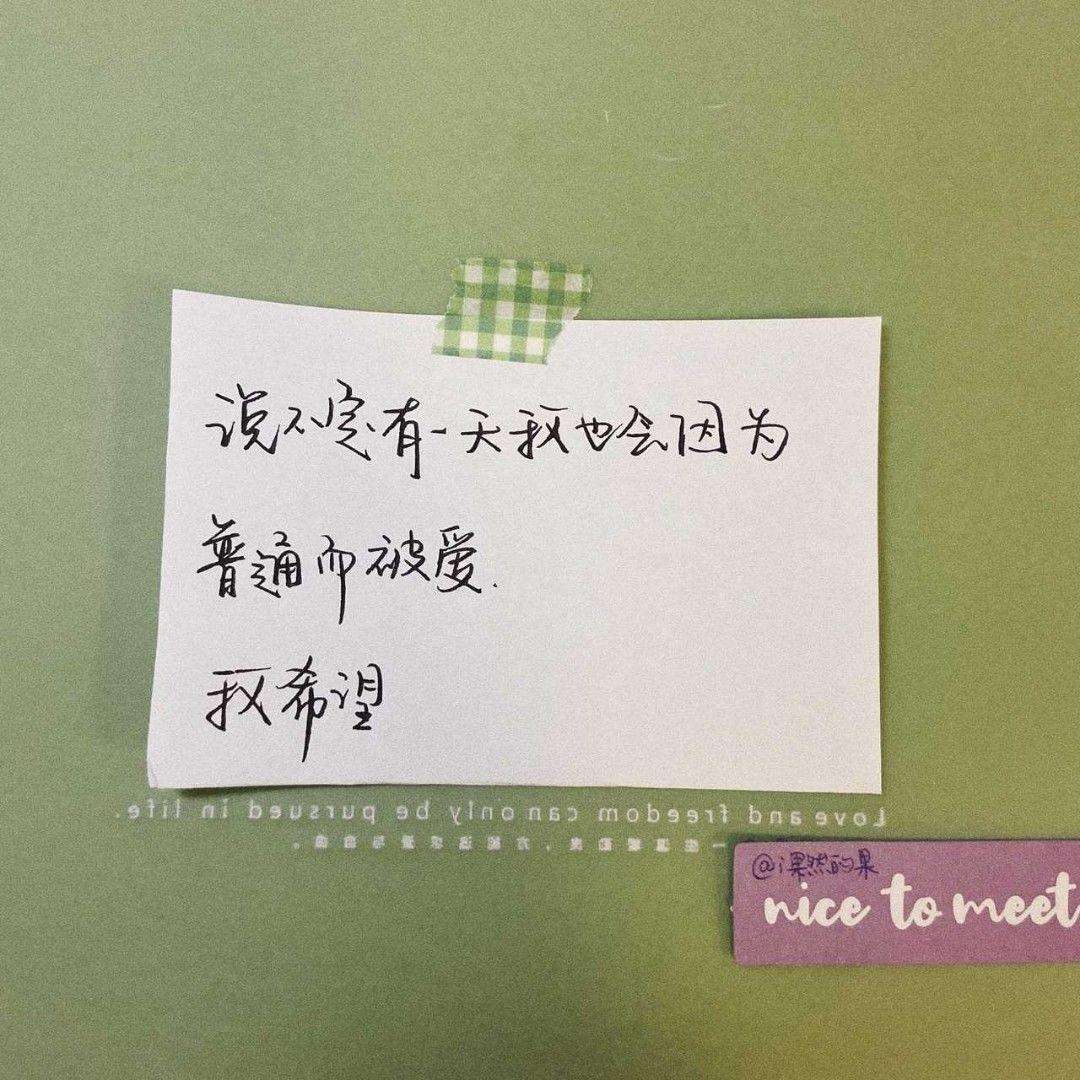 说不定有一天我也会因为
普通而被爱.
我希望
Love and freedom can only be pursued in life.
@课然的果
nice to meet